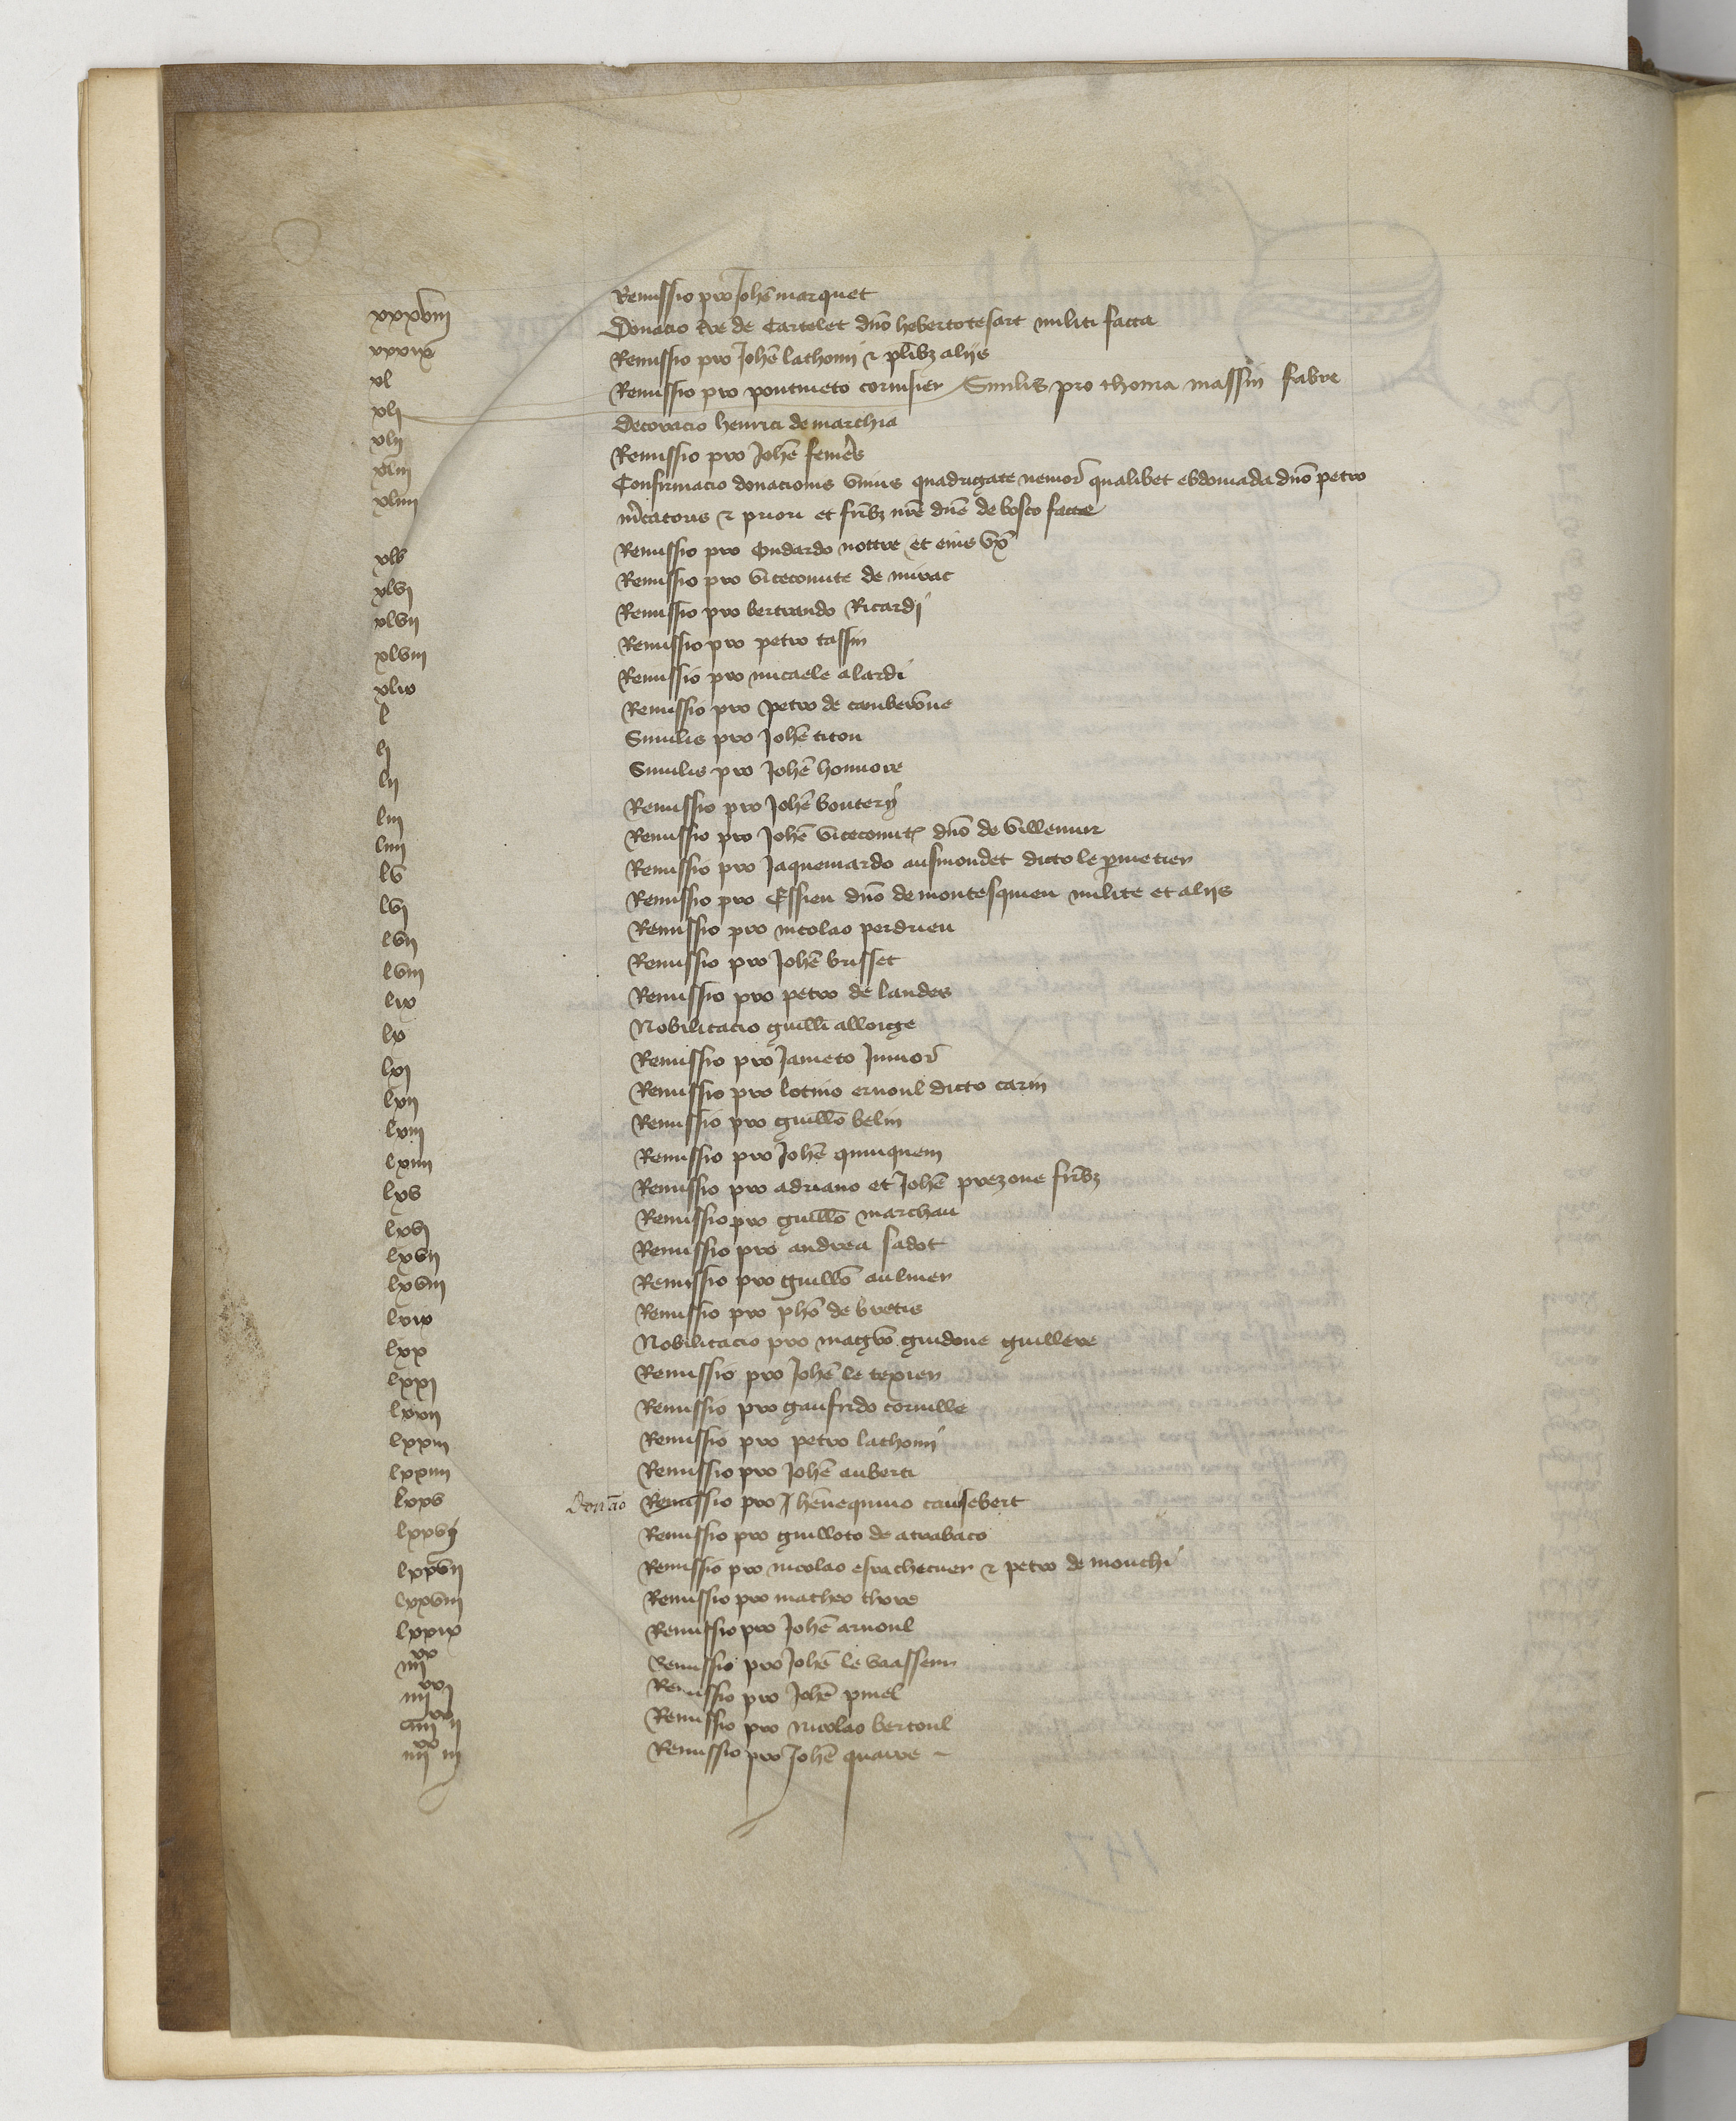 xxxviii Remissio pro Johē marquet
xxxix Donacio tre de Cartelet dno hebertotesart militi facta
xl Remissio pro Johē lathomi & plībz aliis
xli Remissio pro pontineto corinsier Similis pro thoma massin fabre
xlii Decoracio henrici de marchia
xliii Remissio pro Johē
xliiii Confirmacio donacionis unius quadrigate nemor qualibet ebdomada dno petro
mcatoris & priori et frībz nrē dnē de bosco facte
xlv Remissio pro Oudardo nottre et eius ux
xlvi Remissio pro vicecomite de murac
xlvii Remissio pro bertrando Ricardi
xlviii Remissio pro petro tassin
xlix Remissio pro micaele alardi
l Remissio pro petro de camberone
li Similis pro Johē titon
lii Similis pro Johē honnore
liii Remissio pro Johē bontery
liiii Remissio pro Johē vicecomit dno de villemur
lv Remissio pro Jaquemardo ausmondet dicto le pmetier
lvi Remissio pro Essieu dno de montesquieu milite et aliis
lvii Remissio pro nicolao perdrieu
lviii Remissio pro Johē brisset
lix Remissio pro petro de landes
lx Nobilitacio guilli allorge
lxi Remissio pro Jameto Junior
lxii Remissio pro lotino ernoul dicto carin
lxiii Remissio pro guillo belin
lxiiii Remissio pro Johē quinquem
lxv Remissio pro adriano et Johē prezone frībz
lxvi Remissio pro guillo marchau
lxvii Remissio pro andrea sadot
lxviii Remissio pro guillo aulmer
lxix Remissio pro pho de bretis
lxx Nobilitacio pro magro guidone guillere
lxxi Remissio pro Johē le texier
lxxii Remissio pro gaufrido cornille
lxxiii Remissio pro petro lathomi
lxxiiii Remissio pro Johē auberti
lxxv Donāo Remissio pro Jhēnequino causebert
lxxvi Remissio pro guilloto de atrabato
lxxvii Remissio pro nicolao & petro de mouchi
lxxviii Remissio pro matheo thore
lxxix Remissio pro Johē arnoul
iiiixx Remissio pro Johē le vaasseur
iiiixxi Remissio pro Johē pinel
iiiixxii Remissio pro Nicolao bertoul
iiiixxiii Remissio pro Johē quarre